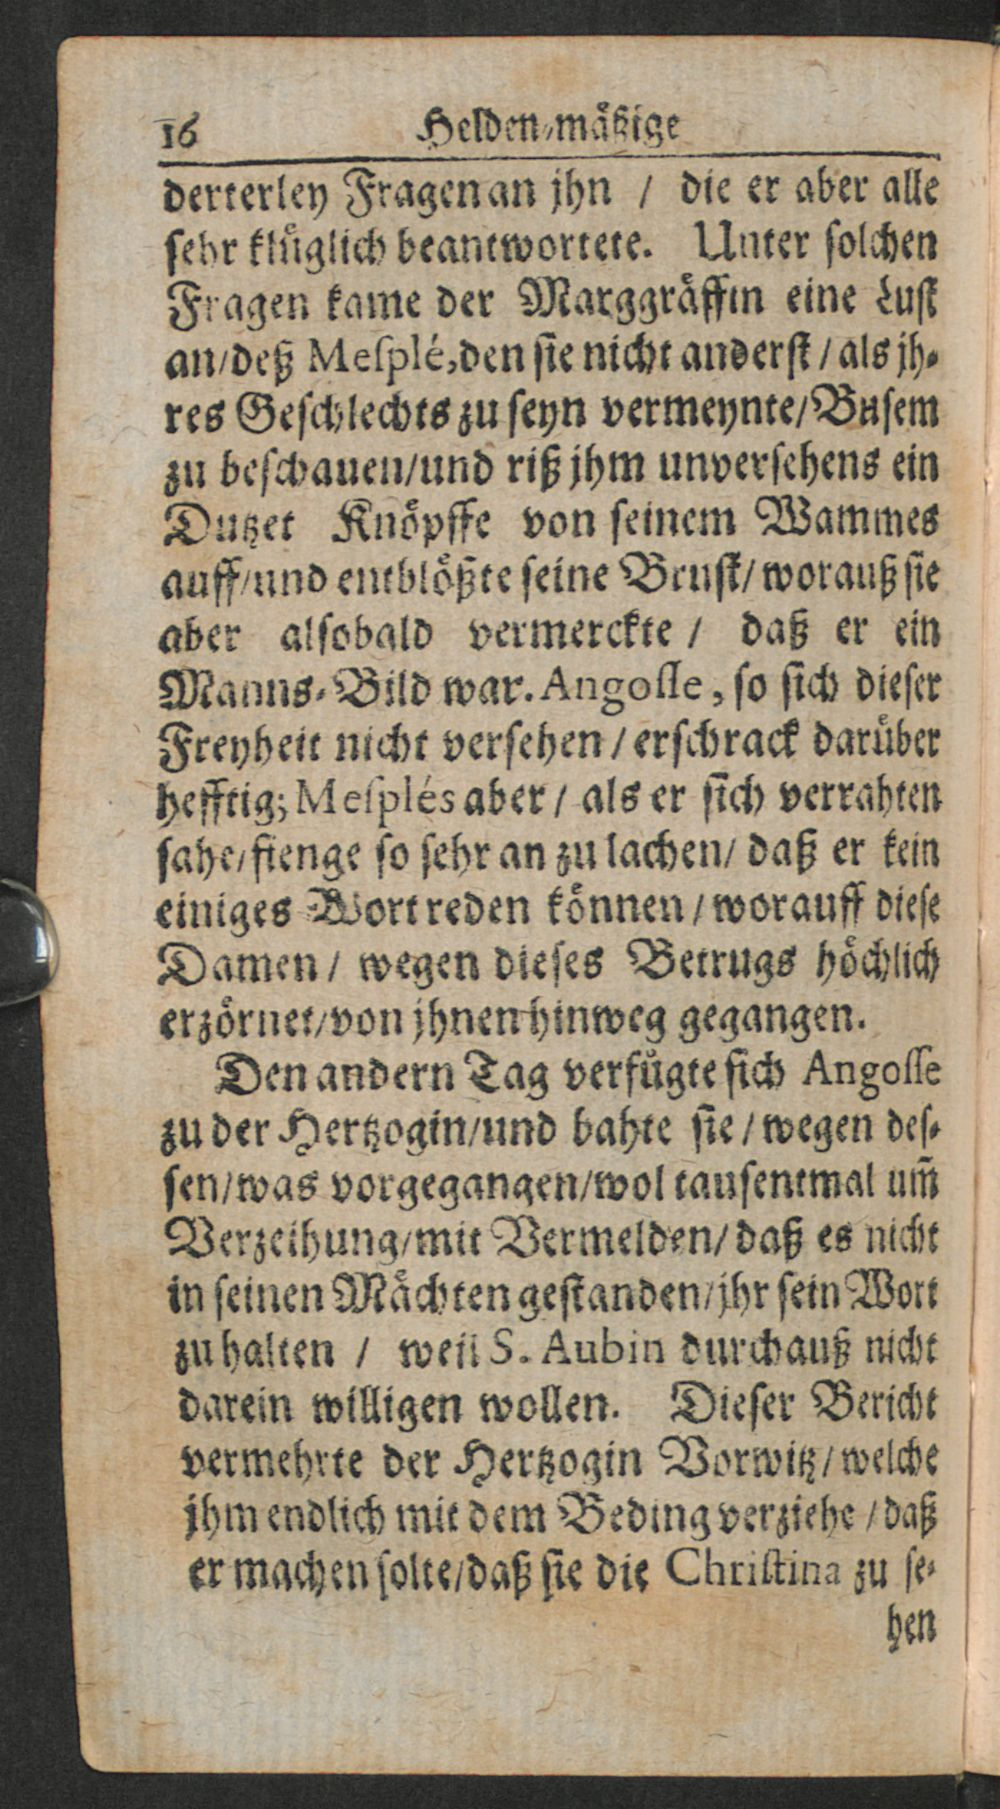 16 Helden-mäßige
derterley Fragen an jhn / die er aber alle
sehr klüglich beantwortete. Unter solchen
Fragen kame der Marggräffin eine Lust
an/deß Mesplé, den sie nicht anderst / als jh-
res Geschlechts zu seyn vermeynte/Busem
zu beschauen/und riß jhm unversehens ein
Dutzet Knöpffe von seinem Wammes
auff/und entblößte seine Brust/ worauß sie
aber alsobald vermerckte / daß er ein
Manns-Bild war. Angosse, so sich dieser
Freyheit nicht versehen / erschrack darüber
hefftig; Mesplés aber / als er sich verrahten
sahe/fienge so sehr an zu lachen/ daß er kein
einiges Wort reden können / worauff diese
Damen / wegen dieses Betrugs höchlich
erzörnet/von jhnen hinweg gegangen.
Den andern Tag verfügte sich Angosse
zu der Hertzogin/und bahte sie / wegen des-
sen/was vorgegangen/wol tausentmal um̃
Verzeihung/mit Vermelden/ daß es nicht
in seinen Mächten gestanden/jhr sein Wort
zu halten / weil S. Aubin durchauß nicht
darein willigen wollen. Dieser Bericht
vermehrte der Hertzogin Vorwitz / welche
jhm endlich mit dem Beding verziehe / daß
er machen solte/daß sie die Christina zu se-
hen